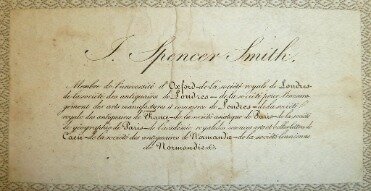 J. Spencer Smith,
Membre de l'université d'Oxford-de la société royale de Londres-
de la société des antiquaires de Londres-de la société pour l'encoura-
gement des arts manufactures & commerce de Londres-de la société
royale des antiquaires de France-de la société asiatique de Paris-de la société
de géographie de Paris-de l'académie royale des sciences arts et belles lettres de
Caen-de la société des antiquaires de Normandie-de la société linnéenne
de Normandie